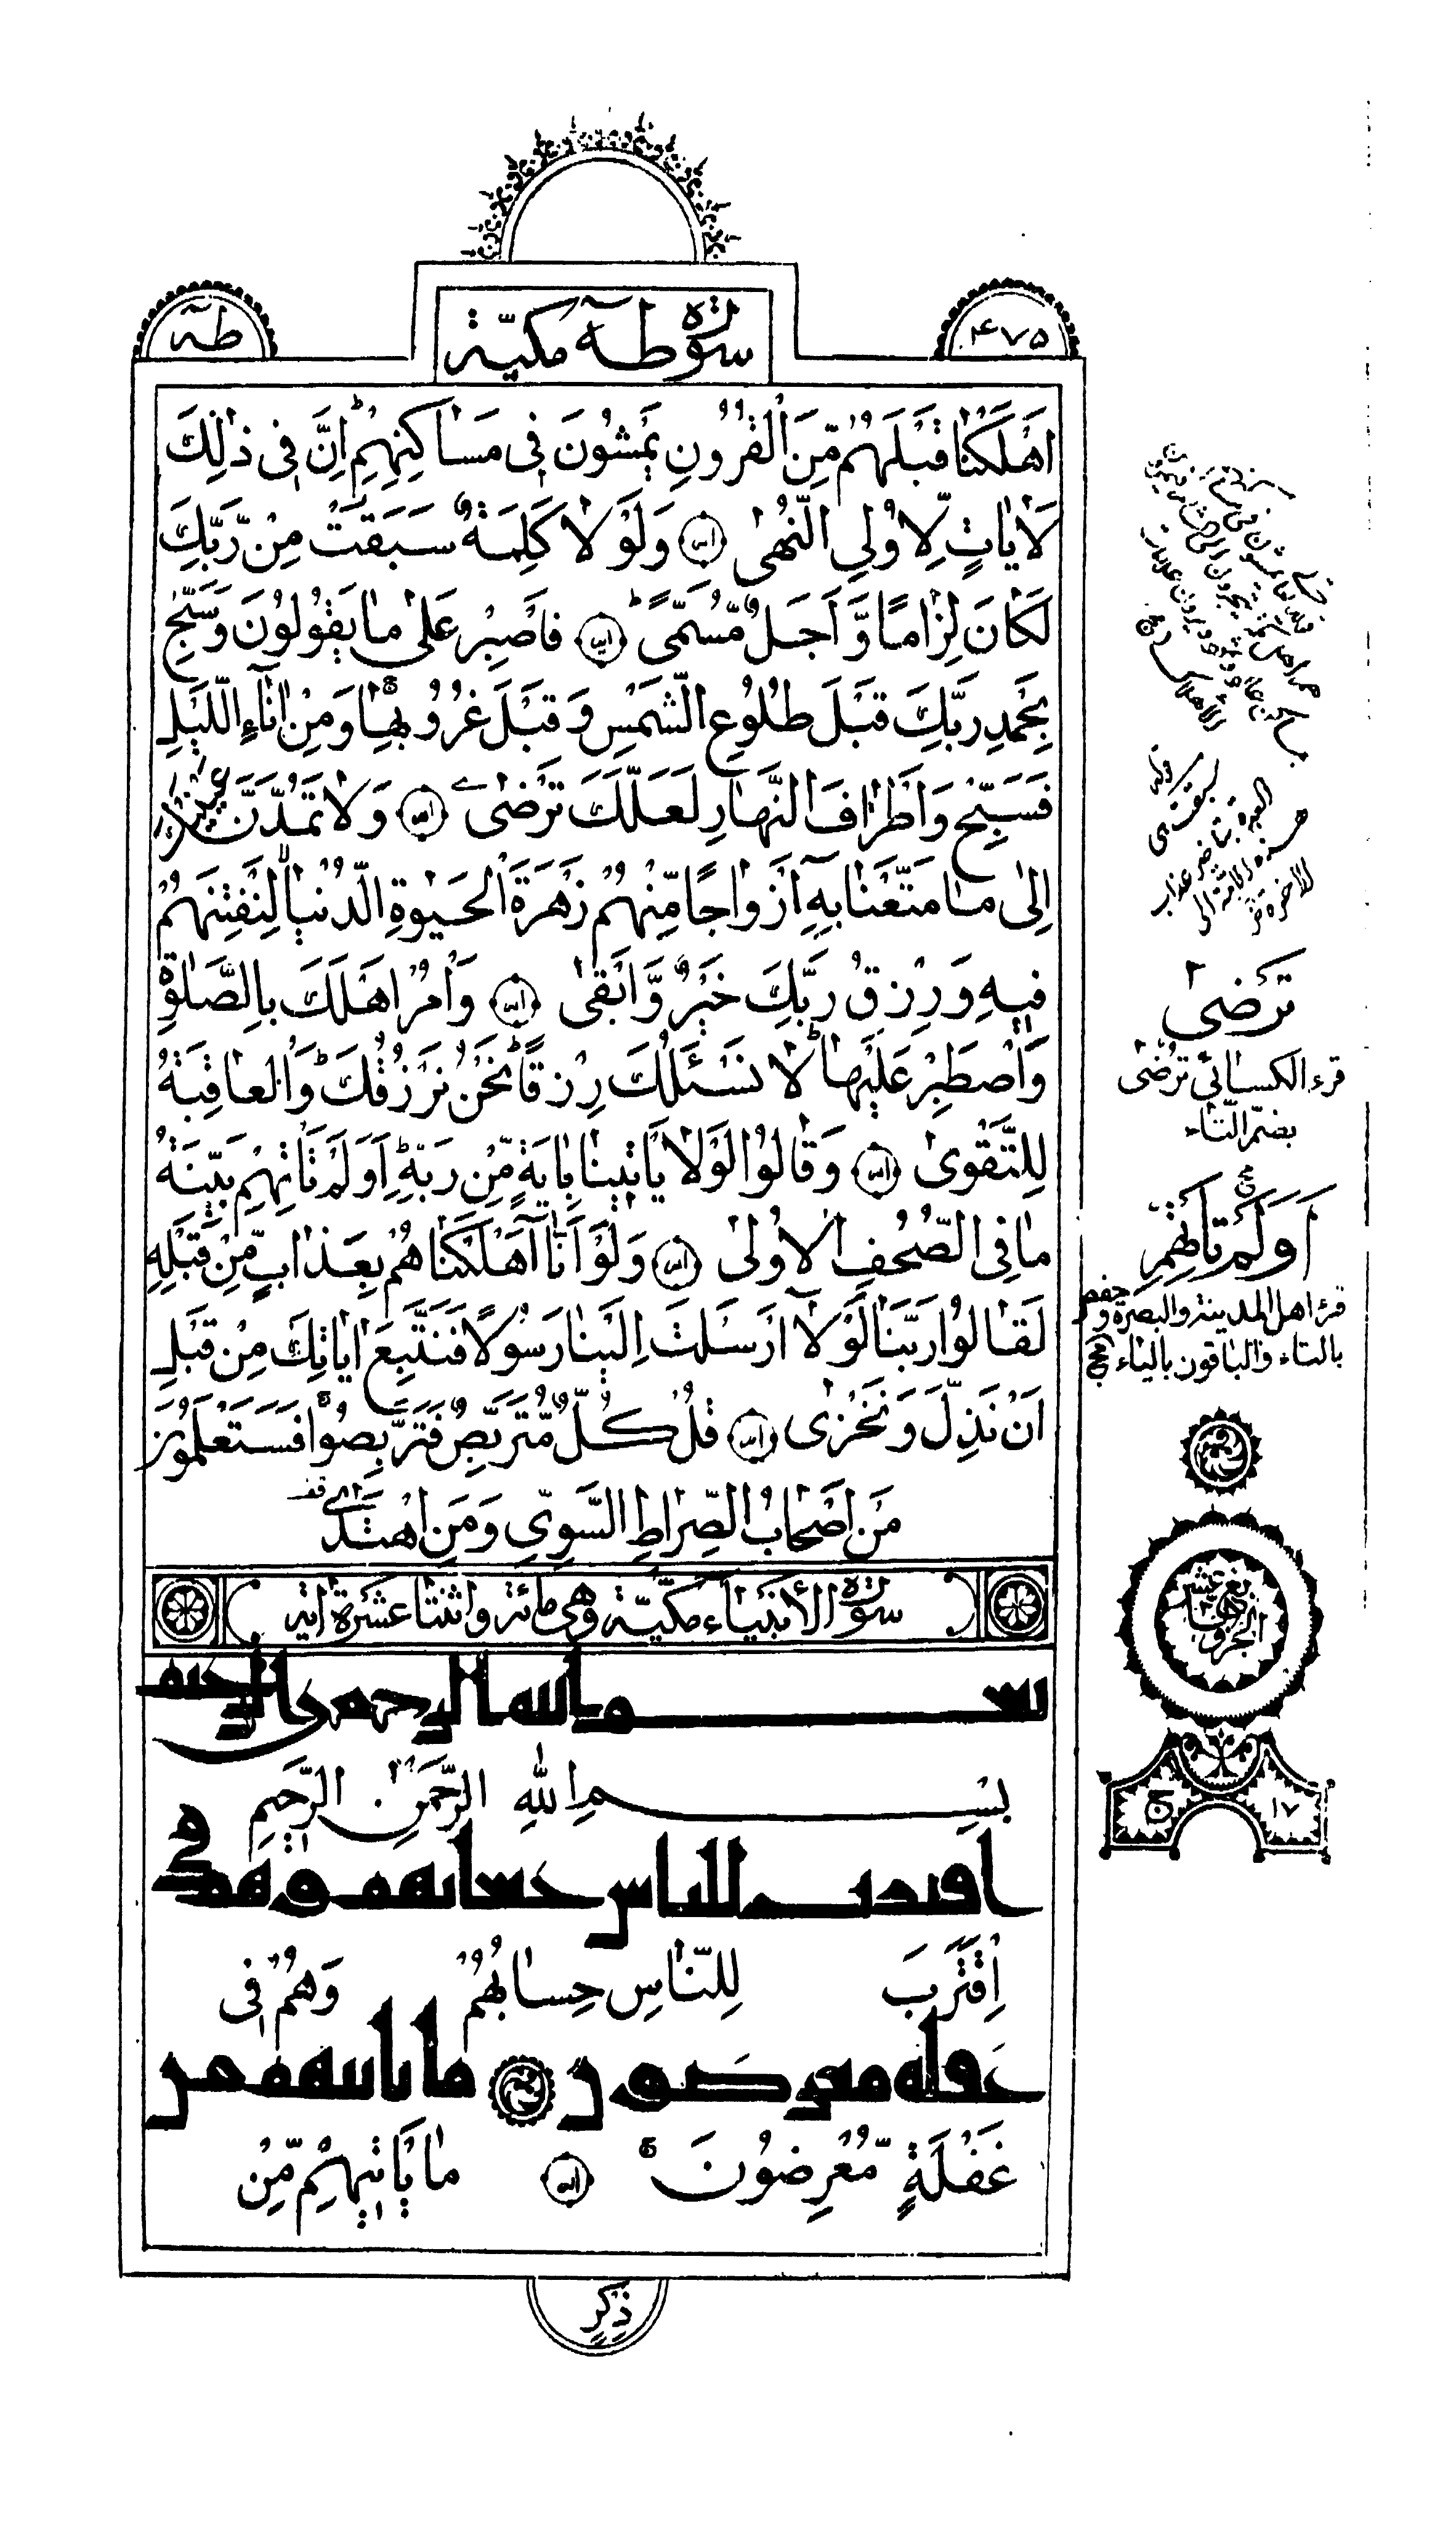 ۴۷۵
سورة طٰه مكيّة
طٰه
اَهْلَكْنٰا قَبْلَهُمْ مِّنَ الْقُرُونِ يَمْشُونَ فِى مَسٰاكِنِهِمْ ط اِنَّ فِى ذٰلِكَ
لَاٰيٰاتٍ لِاُولِى النُّهىٰ وَلَوْلٰا كَلِمَةٌ سَبَقَتْ مِنْ رَّبِّكَ
لَكٰانَ لِزٰامًا وَّ اَجَلٌ مُّسَمًّى ط فَاصْبِرْ عَلىٰ مٰا يَقُولُونَ وَسَبِّحْ
بِحَمْدِ رَبِّكَ قَبْلَ طُلُوعِ الشَّمْسِ وَقَبْلَ غُرُوبِهٰا وَمِنْ اٰنٰآءِ اللَّيْلِ
فَسَبِّحْ وَاَطْرٰافَ النَّهٰارِ لَعَلَّكَ تَرْضىٰ وَلٰا تَمُدَّنَّ عَيْنَيْكَ
اِلىٰ مٰا مَتَّعْنٰا بِهِٓ اَزْوٰاجًا مِّنْهُمْ زَهْرَةَ الْحَيٰوةِ الدُّنْيٰا لِنَفْتِنَهُمْ
فِيهِ وَرِزْقُ رَبِّكَ خَيْرٌ وَّاَبْقىٰ وَأْمُرْ اَهْلَكَ بِالصَّلٰوةِ
وَاصْطَبِرْ عَلَيْهٰا ط لٰا نَسْـَٔلُكَ رِزْقًا ط نَحْنُ نَرْزُقُكَ ط وَالْعٰاقِبَةُ
لِلتَّقْوىٰ وَقٰالُوا لَوْلٰا يَأْتِينٰا بِاٰيَةٍ مِّنْ رَبِّهِ ط اَوَلَمْ تَأْتِهِمْ بَيِّنَةُ
مٰا فِى الصُّحُفِ الْاُولىٰ وَلَوْ اَنّٰآ اَهْلَكْنٰاهُمْ بِعَذٰابٍ مِّنْ قَبْلِهِ
لَقٰالُوا رَبَّنٰا لَوْلٰآ اَرْسَلْتَ اِلَيْنٰا رَسُولًا فَنَتَّبِعَ اٰيٰاتِكَ مِنْ قَبْلِ
اَنْ نَذِلَّ وَنَخْزىٰ قُلْ كُلٌّ مُّتَرَبِّصٌ فَتَرَبَّصُوا فَسَتَعْلَمُونَ
مَنْ اَصْحٰابُ الصِّرٰاطِ السَّوِىِّ وَمَنِ اهْتَدىٰ
سورة الأنبياء مكّيّة وهى مائة واثنتا عشرة اٰية
بسم الله الرحمن الرحيم
بِسْمِ اللهِ الرَّحْمٰنِ الرَّحِيمِ
اقترب للناس حسابهم وهم فى
اِقْتَرَبَ لِلنّٰاسِ حِسٰابُهُمْ وَهُمْ فِى
غفلة معرضون ما ياتيهم من
غَفْلَةٍ مُّعْرِضُونَ مٰا يَأْتِيهِمْ مِّن
ذِكْرٍ
تَرْضىٰ
قرء الكسائي تُرْضىٰ
بضمّ التّاء
اَوَلَمْ تَأْتِهِمْ
قرء اهل المدينة والبصرة وحفص
بالتاء والباقون بالياء
۱۷